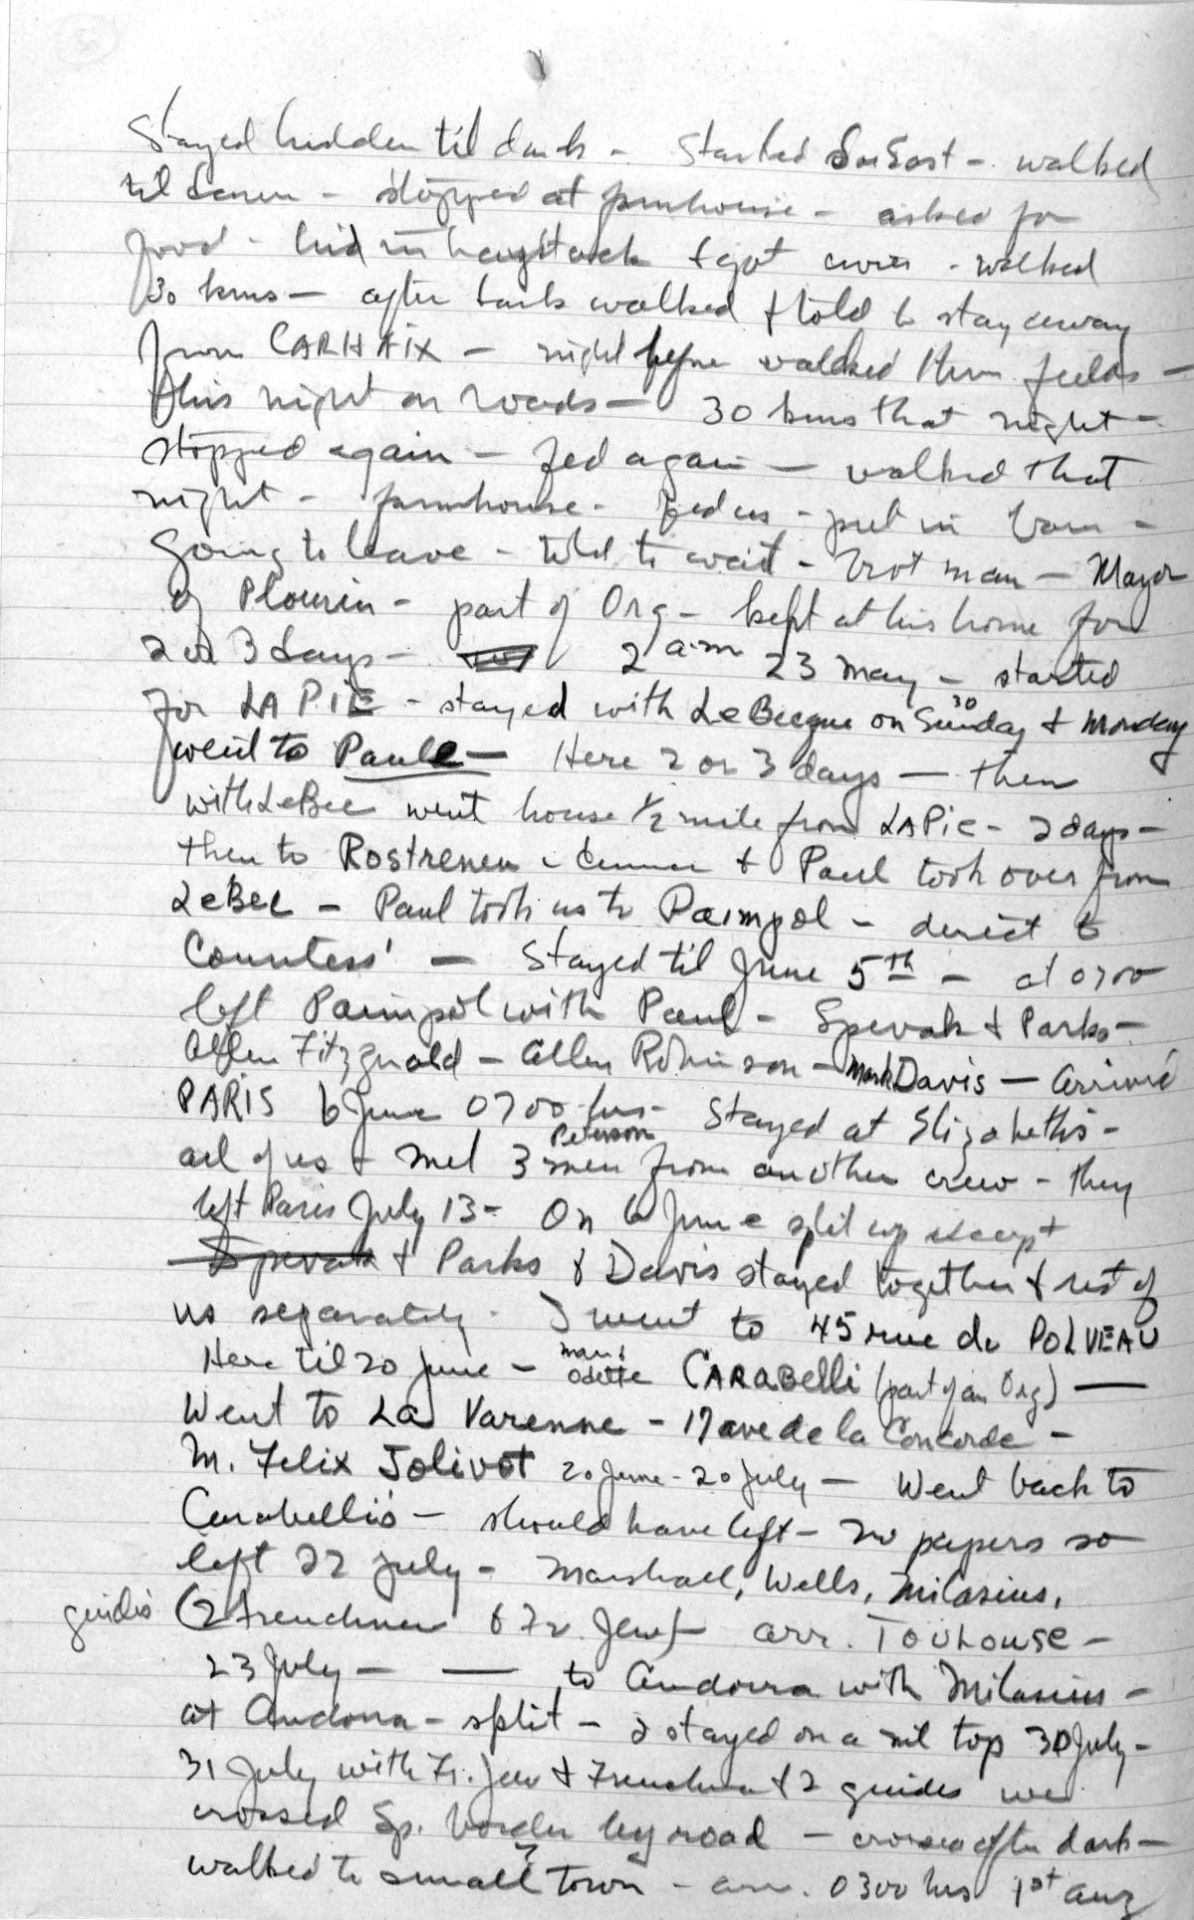 Stayed hidden til dark - Started SouEast - walked
til dawn - stopped at farmhouse - asked for
food - hid in haystack & got civies - walked
30 kms - after dark walked & told to stay away
from CARHAIX - night before walked thru fields -
this night on roads - 30 kms that night -
stopped again - fed again - walked that
night - farmhouse - fed us - put in barn -
Going to leave - told to wait - Brot man - Mayor
of Plourin - part of Org - kept at his home for
2 or 3 days - 2 a.m 23 May - started
for LA PIE - stayed with LeBecque on Sunday 30 & Monday
went to Paule - Here 2 or 3 days - then
with LeBec went house 1/2 mile from LAPie - 2 days -
then to Rostrenen - dinner & Paul took over from
LeBec - Paul took us to Paimpol - direct to
Countess' - Stayed til June 5th - at 0700
left Paimpol with Paul - Spevak & Parks -
Allen Fitzgerald - Allen Robinson - Mark Davis - arrived
PARIS 6 June 0700 hrs - Stayed at Elizabeth's -
all of us & met 3 men Peterson from another crew - they
left Paris July 13 - On 6 June split up except
Spevak & Parks & Davis stayed together & rest of
us separately - I went to 45 rue de POLVEAU
Here til 20 June - Odette CARABELLI (part of an Org) -
Went to La Varenne - 17 ave de la Concorde -
M. Felix Jolivot 20 June - 20 July - Went back to
Carabelli's - should have left - no papers so
left 22 July - Marshall, Wells, Milasius,
guides (2 Frenchmen & Fr. Jew) arr. TOULOUSE -
23 July - to Andorra with Milasius -
at Andorra - split - I stayed on a hill top 30 July -
31 July with Fr. Jew & Frenchman & 2 guides we
crossed Sp. border by road - crossed after dark -
walked to small ? town - arr. 0300 hrs 1st Aug